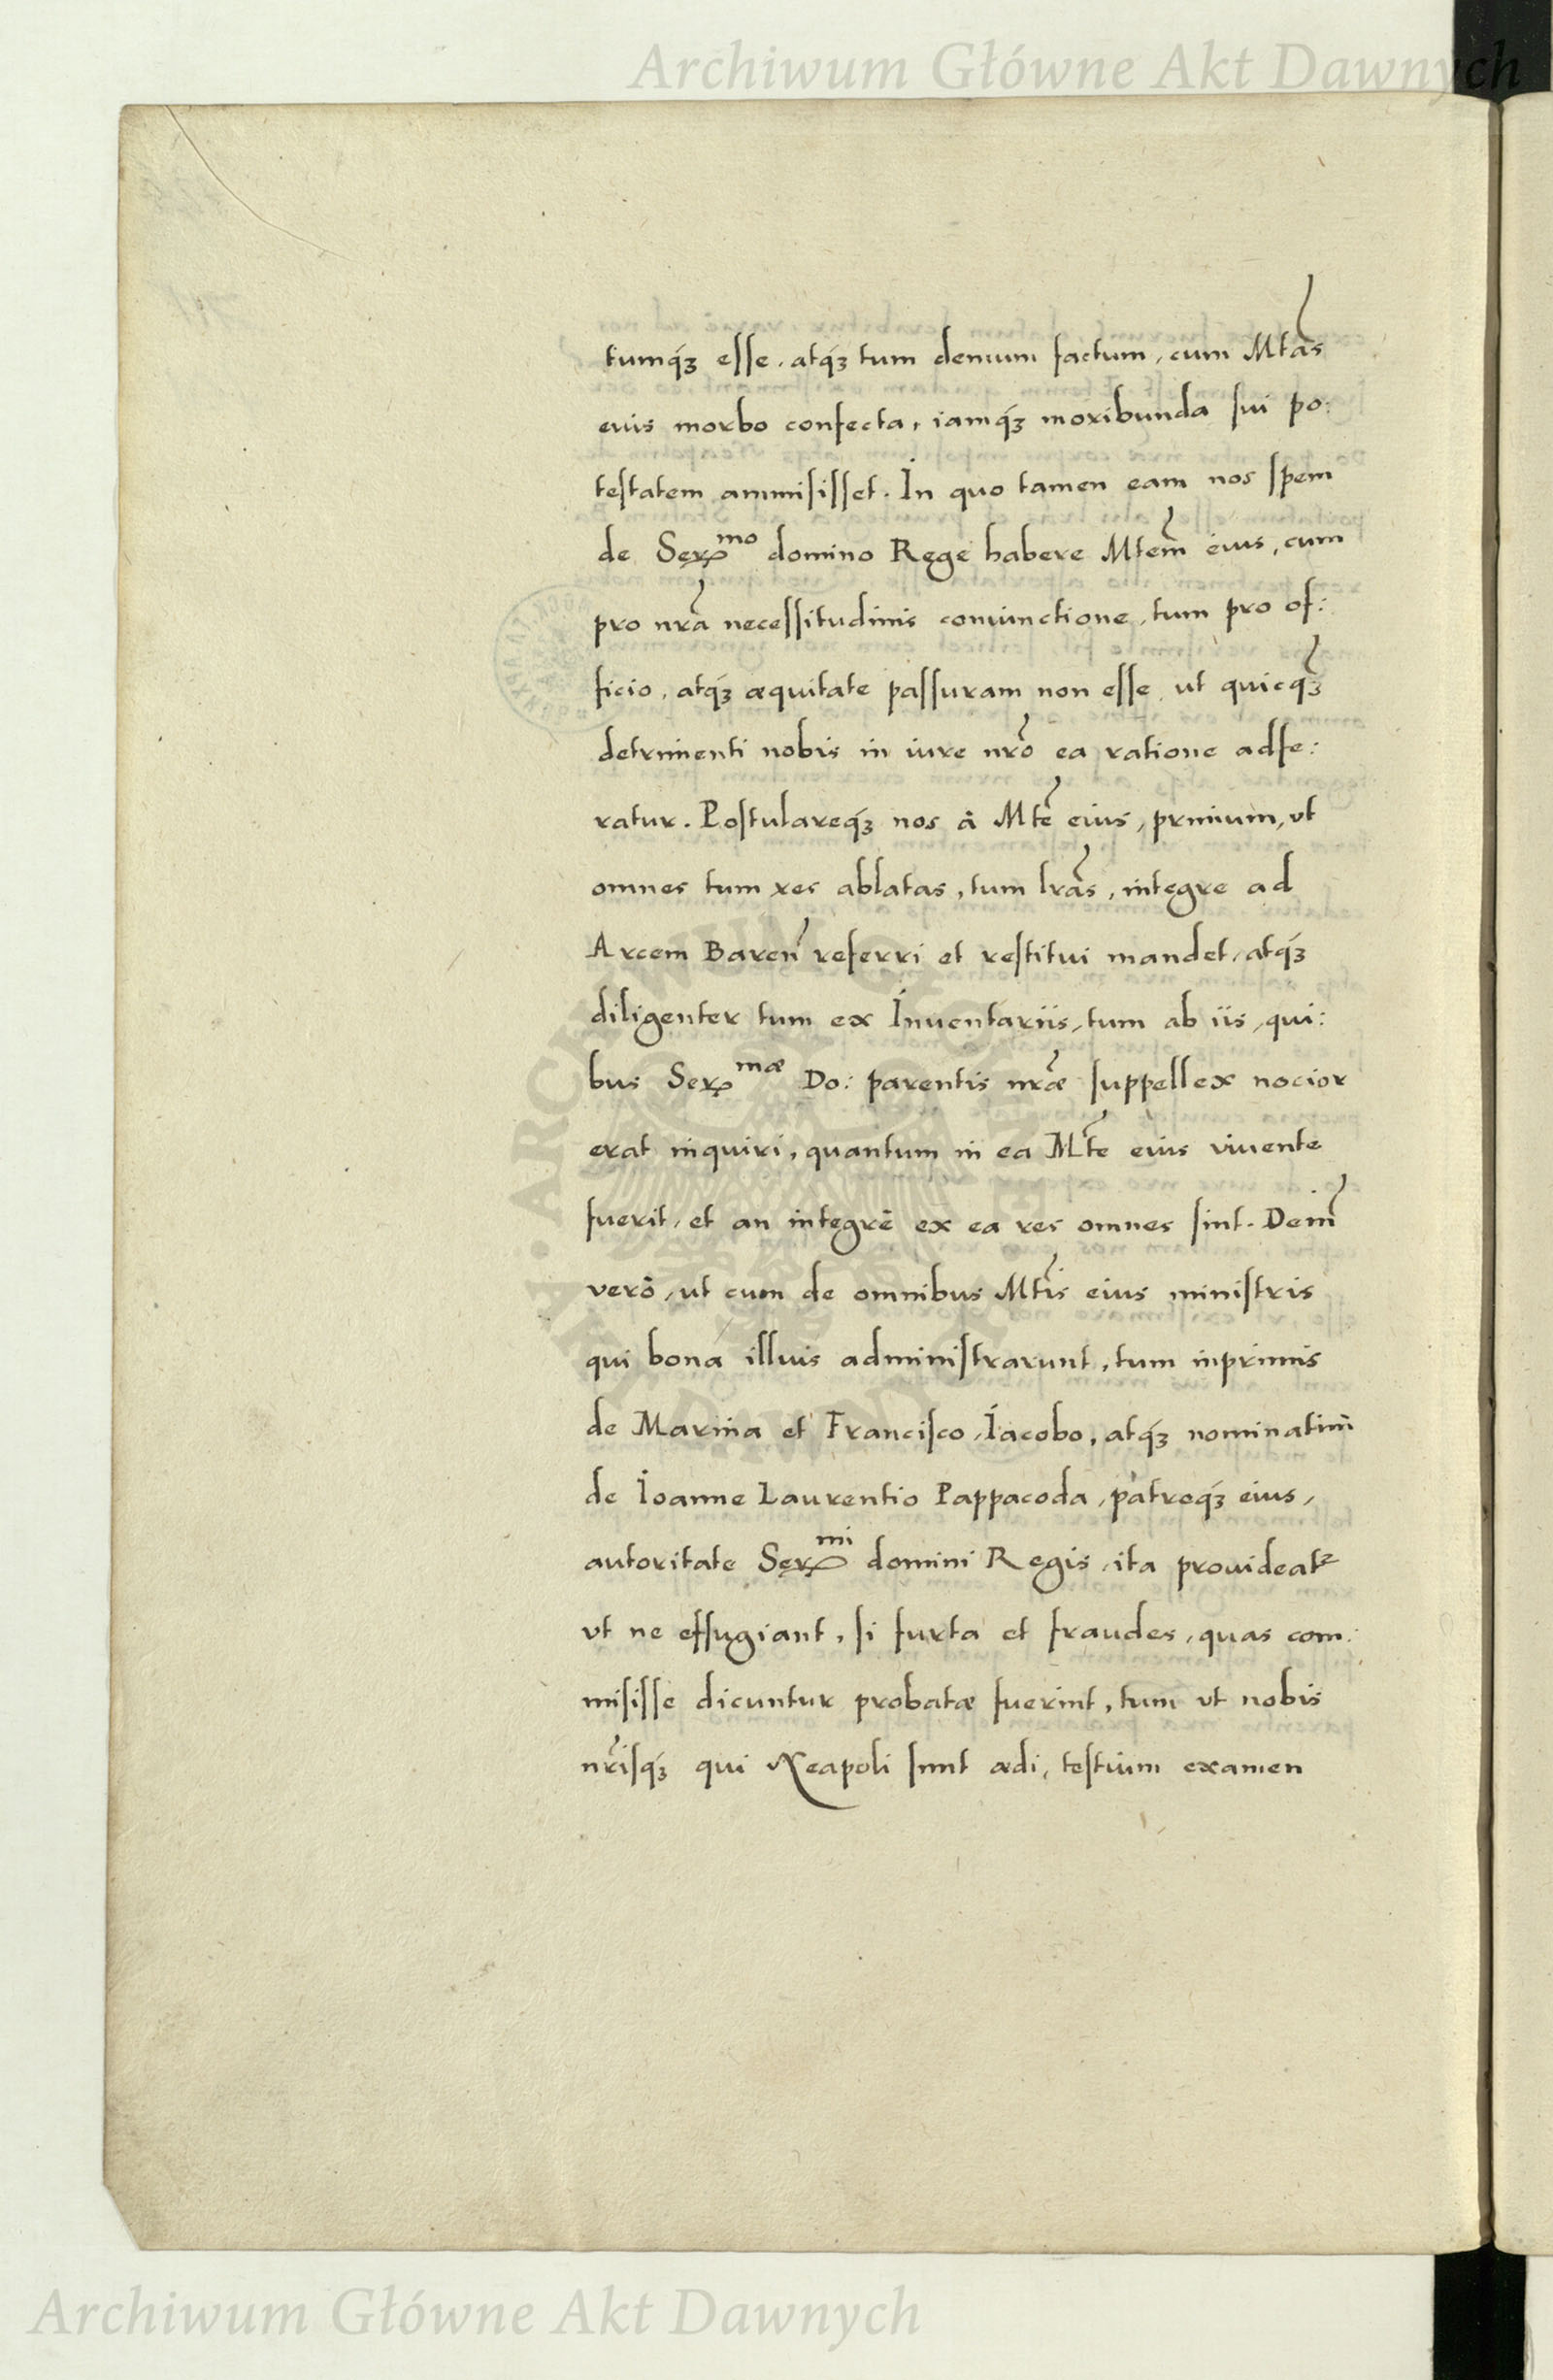 Archiwum Główne Akt Dawnych
tumq́ꝫ esse, atq́ꝫ tum demum factum, cum Mtas
eius morbo confecta, iamq́ꝫ moribunda sui po:
testatem ammisisset. In quo tamen eam nos spem
de Serᵐᵒ domino Rege habere Mtem eius, cum
pro nrã necessitudinis coniunctione, tum pro of:
ficio, atq́ꝫ æquitate passuram non esse, ut quicq́ꝫ
detrimenti nobis in iure nrõ ea ratione adfe:
ratur. Postulareq́ꝫ nos à Mte eius, primum, vt
omnes tum res ablatas, tum lrãs, integre ad
Arcem Baren̄ referri et restitui mandet, atq́ꝫ
diligenter tum ex Inuentariis, tum ab iis, qui:
bus Serᵐᵃᵉ Do: parentis nræ̃ suppellex nocior
erat inquiri, quantum in ea Mte eius viuente
fuerit, et an integrè ex ea res omnes sint. Dein̄
verò, ut cum de omnibus Mtis eius ministris
qui bona illius administrarunt, tum inprimis
de Marina et Francisco, Iacobo, atq́ꝫ nominatim
de Ioanne Laurentio Pappacoda, patroq́ꝫ eius,
autoritate Serᵐⁱ domini Regis, ita prouideatᵘʳ
vt ne effugiant, si furta et fraudes, quas com:
misisse dicuntur probatæ fuerint, tum vt nobis
nrĩsq́ꝫ qui Neapoli sunt ædi, testium examen
Archiwum Główne Akt Dawnych